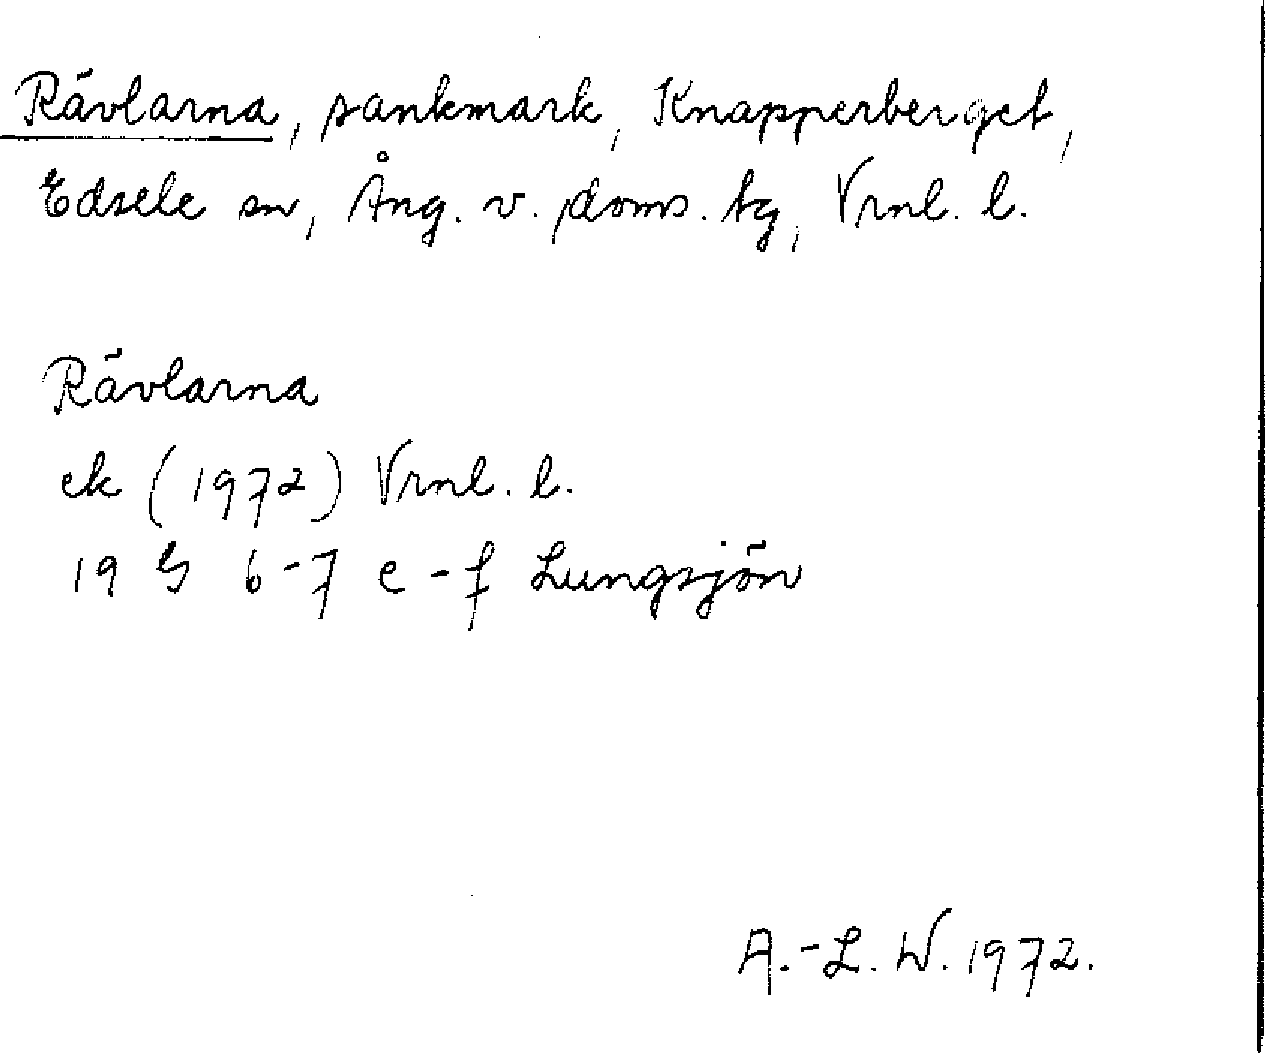 Rävlarna, sankmark, Knapperberget,
Edsele sn, Ång. v. doms. tg, Vrnl. l.
Rävlarna
ek (1972) Vrnl. l.
19 G 6-7 e-f Lungsjön
A.-L. W. 1972.